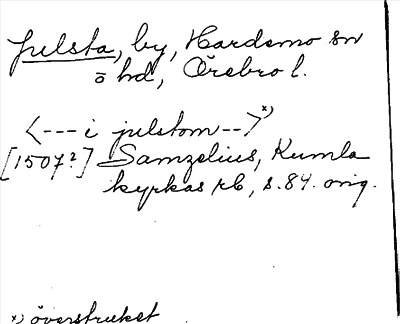 Julsta, by, Hardemo sn
ö hd, Örebro l.
<--- i julstom -->x)
[1507?] Samzelius, Kumla
kyrkas rb, s. 84. orig.
x) överstruket